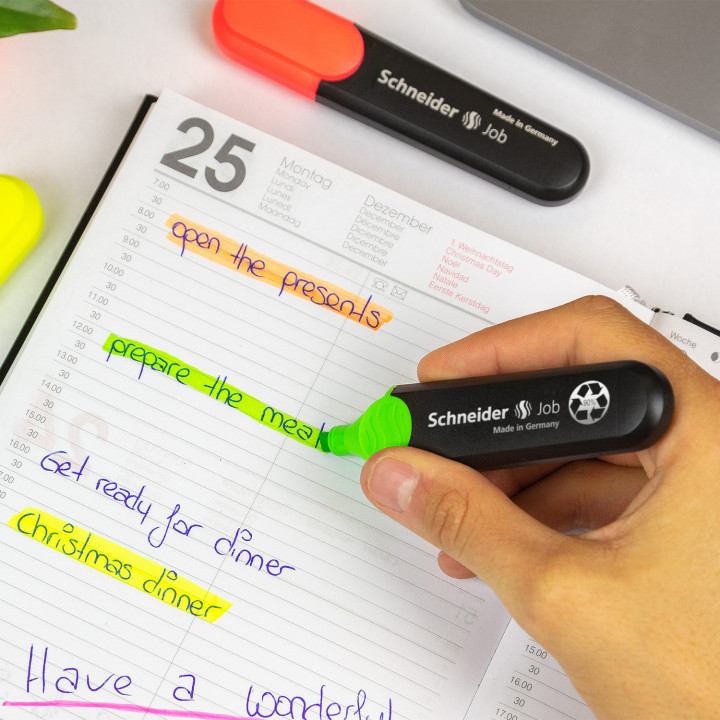 Schneider Job
Made in Germany
25
Montag
Monday
Lundi
Lunes
Lunedì
Maandag
Dezember
December
Décembre
Diciembre
Dicembre
December
1. Weihnachtstag
Christmas Day
Noël
Navidad
Natale
Eerste Kerstdag
Woche
7.00
30
8.00
30
9.00
30
10.00
30
11.00
30
12.00
30
13.00
30
14.00
30
15.00
30
16.00
30
17.00
30
open the presents
prepare the meal
Get ready for dinner
Christmas dinner
Have a wonderful
Schneider Job
Made in Germany
90%
15.00
30
16.00
30
17.00